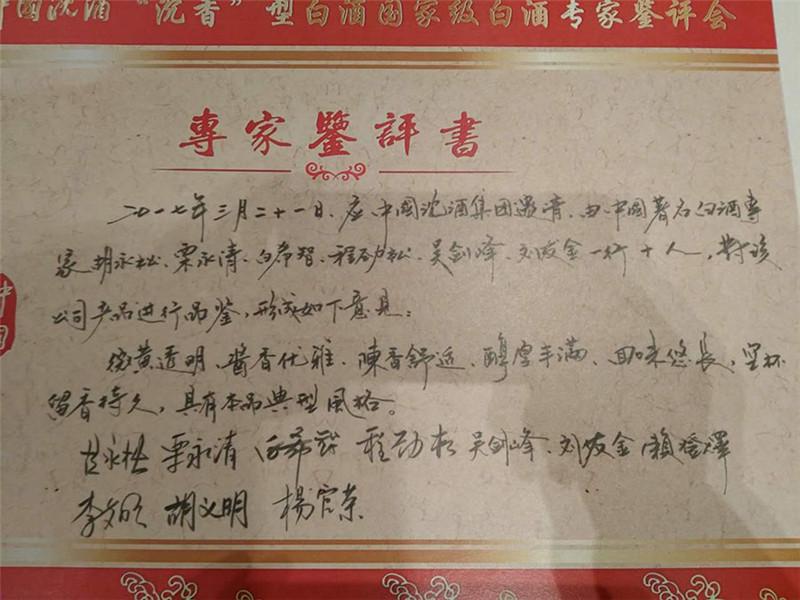 中国沈酒 “沉香” 型白酒国家级白酒专家鉴评会
專家鑒評書
二〇一七年三月二十一日、应中国沈酒集团邀请、由中国著名白酒專
家胡永松、栗永清、白希智、程劲松、吴剑峰、刘友金一行十人，對该
公司产品进行品鉴，形成如下意見：
微黄透明、醬香优雅、陳香舒适、醇厚丰满、回味悠长、空杯
留香持久，具有本品典型風格。
胡永松 栗永清 白希智 程劲松 吴剑峰、刘友金 賴登燡
李 胡义明 楊官荣
中国